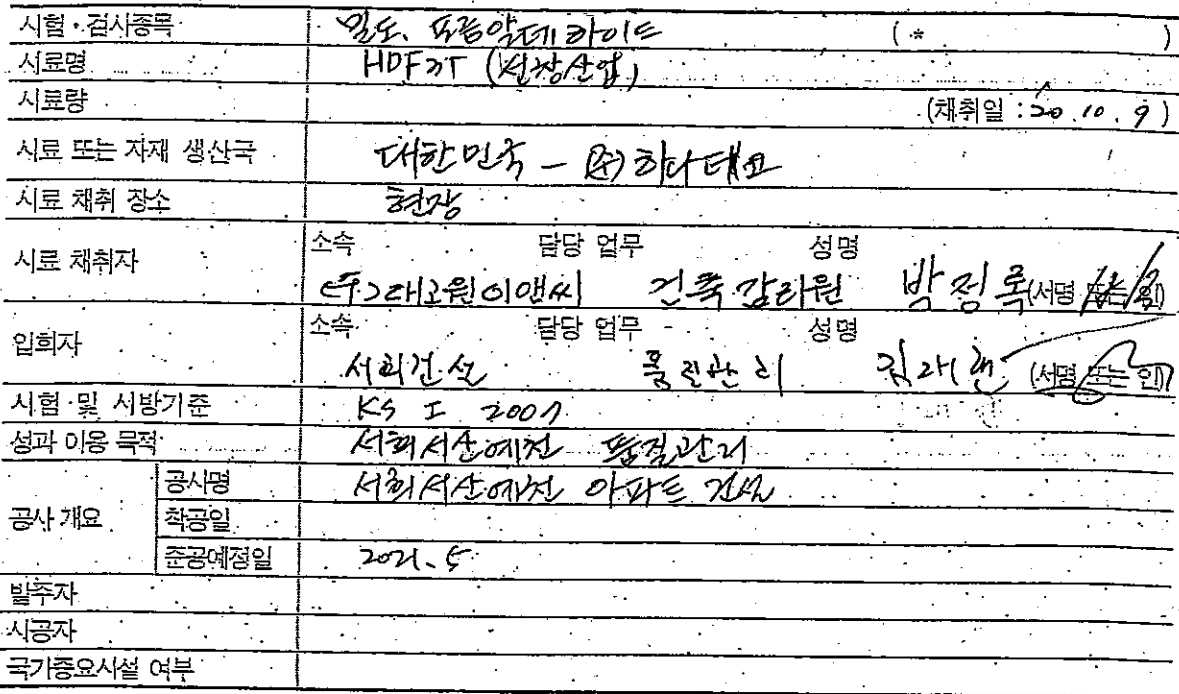 시험·검사종목 밀도, 포름알데하이드 ( * )
시료명 HDF 7T (선창산업)
시료량 (채취일 : 20.10.9)
시료 또는 자재 생산국 대한민국 - (주)하나데코
시료 채취 장소 현장
시료 채취자 소속 담당 업무 성명
(주)대고원이앤씨 건축감리원 박정록 (서명 또는 인)
입회자 소속 담당 업무 성명
서희건설 품질관리 김래현 (서명 또는 인)
시험 및 시방기준 KS I 2007
성과 이용 목적 서희서산예천 품질관리
공사 개요 공사명 서희서산예천 아파트 건설
착공일
준공예정일 2021.5
발주자
시공자
국가중요시설 여부